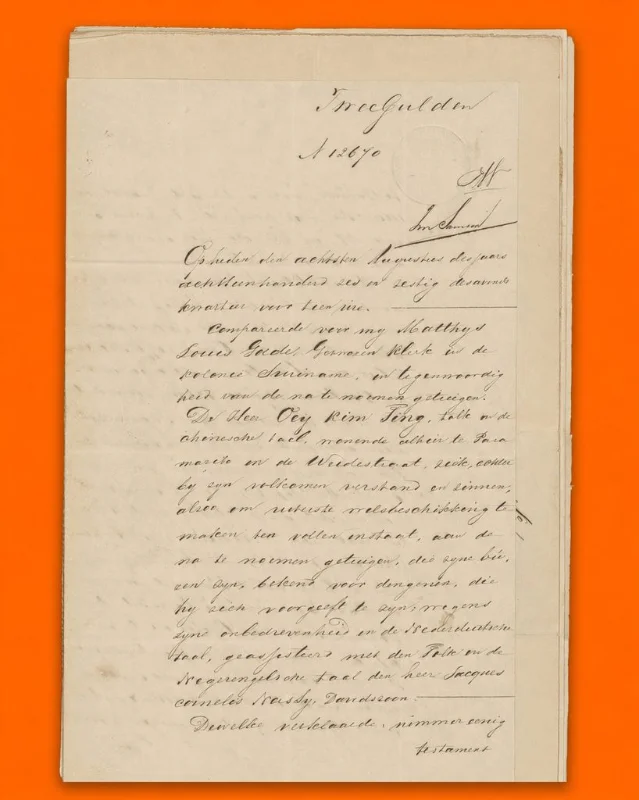 Twee Gulden
N 12670
Op heden den achtsten Augustus des jaars
achttienhonderd zes en zestig des avonds
kwartier voor tien ure.
Compareerde voor my Matthys
Louis Gade, Gezworen Klerk in de
Kolonie Suriname, in tegenwoordig
heid van de na te noemen getuigen.
De Heer Oey Kim Ting, tolk in de
chinesche taal, wonende alhier te Para
maribo in de Weidestraat, ziek, echter
by zyn volkomen verstand en zinnen,
alzoo om uiterste wilsbeschikking te
maken ten vollen instaat, aan de
na te noemen getuigen, die zyne bu,
ren zyn, bekend voor dengenen, die
hy zich voorgeeft te zyn; wegens
zyne onbedrevenheid in de Nederduitsche
taal, geassisteerd met den Tolk in de
Negerengelsche taal den heer Jacques
Cornelis Nassy, Davidszoon.
Dewelke verklaarde, nimmer eenig
testament